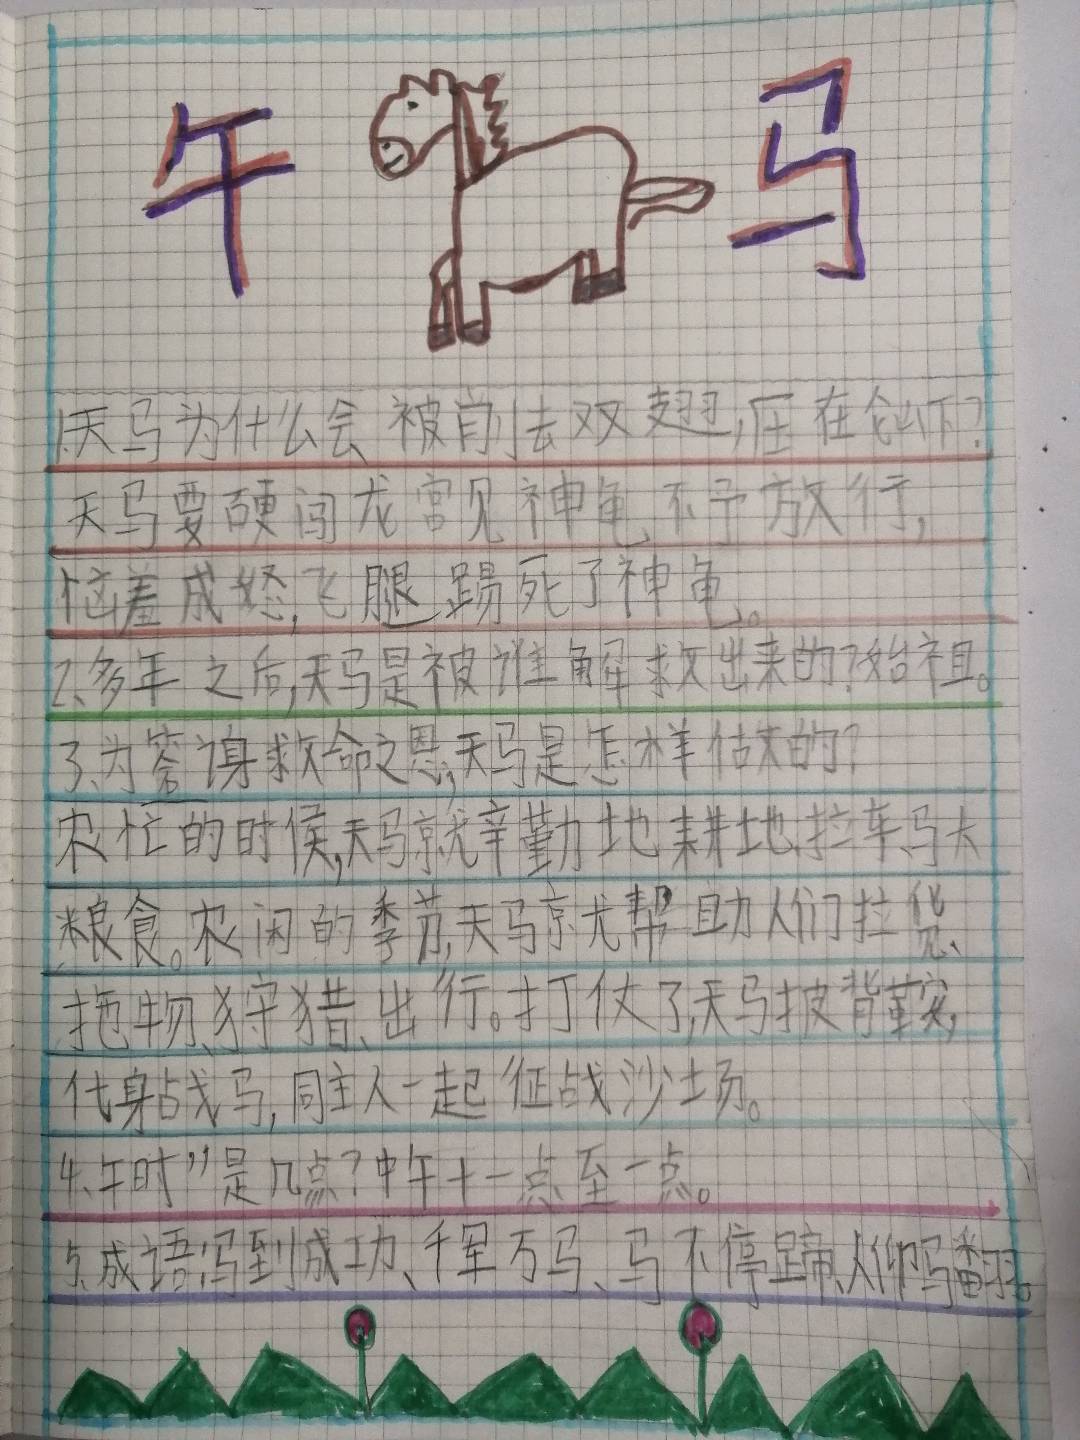 午 马
1.天马为什么会被削去双翅,压在仑山下?
天马要硬闯龙宫见神龟,不予放行,
恼羞成怒,飞腿踢死了神龟。
2、多年之后,天马是被谁解救出来的?始祖。
3、为答谢救命之恩,天马是怎样做的?
农忙的时候,天马就辛勤地耕地、拉车、马大
粮食。农闲的季节,天马就帮助人们拉货、
拖物、狩猎、出行。打仗了,天马披背鞍,
代身战马,同主人一起征战沙场。
4、午时”是几点?中午十一点至一点。
5、成语:马到成功、千军万马、马不停蹄、人仰马翻。